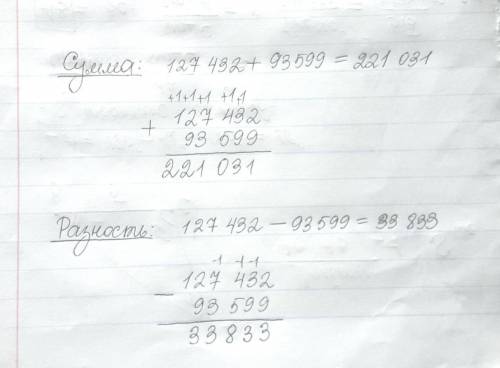 Сумма: 127 432 + 93599 = 221 031
+1+1+1 +1+1
127 432
+
93 599
221 031
Разность: 127 432 - 93599 = 33 833
-1 -1-1
127 432
-
93 599
33833